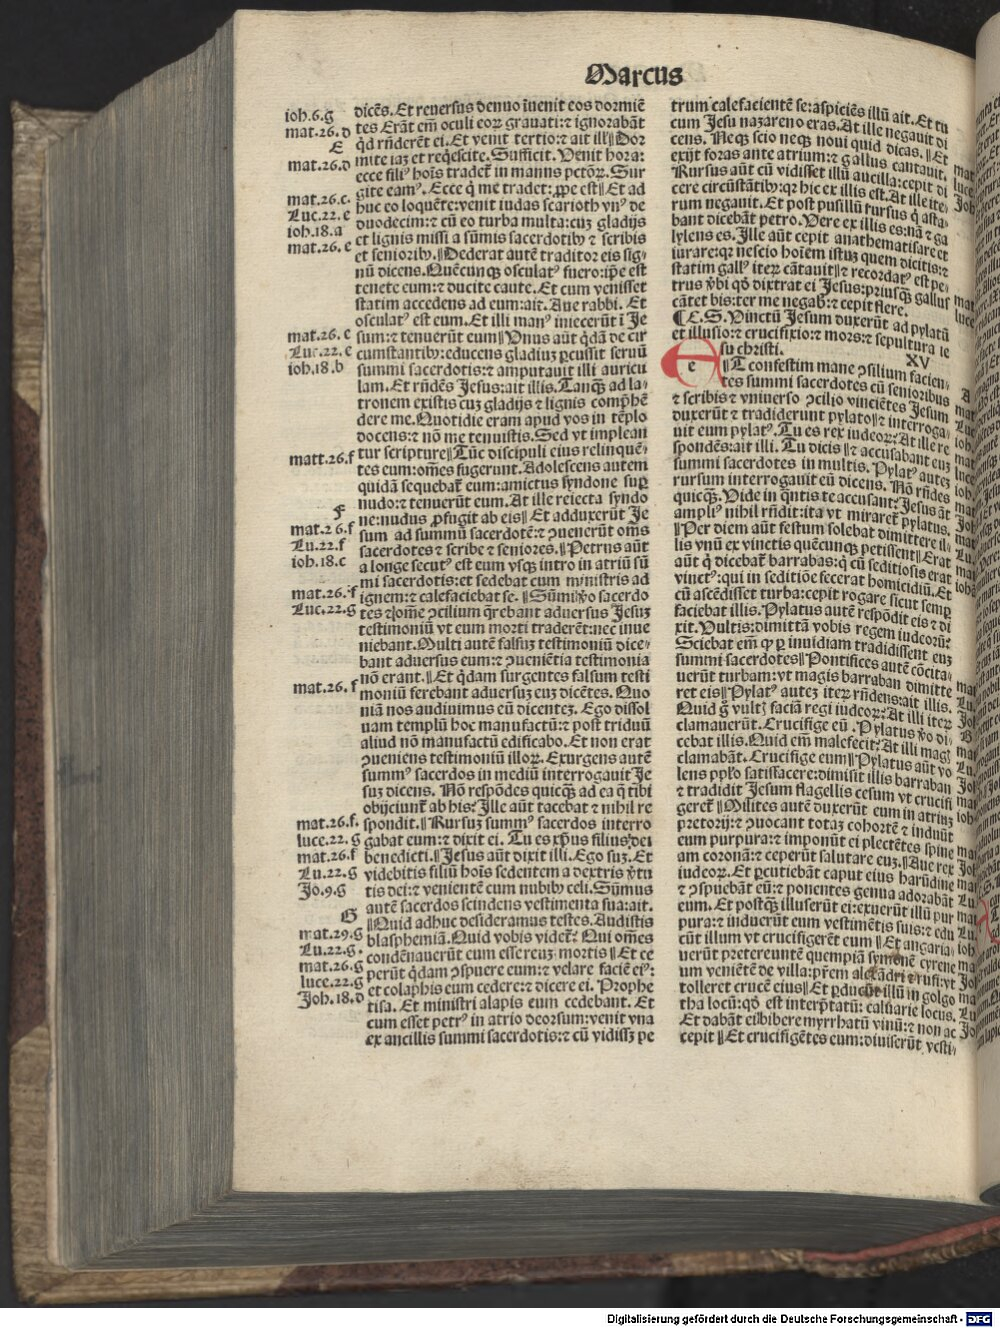 Marcus
dicẽs. Et reuersus denuo ĩuenit eos dormiẽ
tes Erãt em̃ oculi eoꝝ grauati: ⁊ ignorabãt
qd rñderẽt ei. Et venit tertio: ⁊ ait ill' Dor
mite iaȝ et reqescite. Sufficit. Venit hora:
ecce filiꝰ hoĩs tradet̃ in manus pctõꝝ. Sur
gite eamꝰ. Ecce q̇ me tradet: ꝓpe est Et ad
huc eo loquẽte: venit iudas scarioth vnꝰ de
duodecim: ⁊ cũ eo turba multa: cuȝ gladijs
et lignis missi a sũmis sacerdotibꝰ ⁊ scribis
et senioribꝰ. Dederat autẽ traditor eis sig-
nũ dicens. Quẽcunqȝ osculatꝰ fuero: ip̃e est
tenete eum: ⁊ ducite caute. Et cum venisset
statim accedens ad eum: ait. Aue rabbi. Et
osculatꝰ est eum. Et illi manꝰ iniecerũt ĩ Je
sum: ⁊ tenuerũt eum Vnus aut q̇dã de cir
cumstantibꝰ: educens gladiuȝ ꝑcussit seruũ
summi sacerdotis: ⁊ amputauit illi auricu
lam. Et rñdẽs Jesus: ait illis. Tanqȝ ad la-
tronem existis cuȝ gladijs ⁊ lignis comp̃hẽ
dere me. Quotidie eram apud vos in tẽplo
docens: ⁊ nõ me tenuistis. Sed vt impleãt
tur scripture Tũc discipuli eius relinquẽ-
tes eum: om̃es fugerunt. Adolescens autem
quidã sequebat̃ eum: amictus syndone suꝑ
nudo: ⁊ tenuerũt eum. At ille reiecta syndo
ne: nudus ꝓfugit ab eis Et adduxerũt Je
sum ad summũ sacerdotẽ: ⁊ ꝯuenerũt om̃s
sacerdotes ⁊ scribe ⁊ seniores. Petrus aũt
a longe secutꝰ est eum vsqȝ intro in atriũ sũ
mi sacerdotis: et sedebat cum ministris ad
ignem: ⁊ calefaciebat se. Sũmi ṽo sacerdo
tes ⁊ om̃e ꝯcilium q̃rebant aduersus Jesuȝ
testimoniũ vt eum morti traderẽt: nec inue
niebant. Multi autẽ falsuȝ testimoniũ dice-
bant aduersus eum: ⁊ ꝯueniẽtia testimonia
nõ erant. Et q̇dam surgentes falsum testi
moniũ ferebant aduersuȝ euȝ dicẽtes. Quo
niã nos audiuimus eũ dicenteȝ. Ego dissol
uam templũ hoc manufactũ: ⁊ post triduũ
aliud nõ manufactũ edificabo. Et non erat
ꝯueniens testimoniũ illoꝝ. Exurgens autẽ
summꝰ sacerdos in mediũ interrogauit Je
suȝ dicens. Nõ respõdes quicqȝ ad ea q̃ tibi
obijciunt̃ ab his? Ille aũt tacebat ⁊ nihil re
spondit. Rursuȝ summꝰ sacerdos interro
gabat eum: ⁊ dixit ei. Tu es xp̃us filius dei
benedicti. Jesus aũt dixit illi. Ego suȝ. Et
videbitis filiũ hoĩs sedentem a dextris ṽtu
tis dei: ⁊ venientẽ cum nubibꝰ celi. Sũmus
autẽ sacerdos scindens vestimenta sua: ait.
Quid adhuc desideramus testes. Audistis
blasphemiã. Quid vobis videt̃? Qui om̃es
condẽnauerũt eum esse reuȝ mortis Et ce
perũt q̇dam ꝯspuere eum: ⁊ velare faciẽ eiꝰ:
et colaphis eum cedere: ⁊ dicere ei. Prophe
tisa. Et ministri alapis eum cedebant. Et
cum esset petrꝰ in atrio deorsum: venit vna
ex ancillis summi sacerdotis: ⁊ cũ vidissȝ pe
ioh.6.g
mat.26.d
E
mat.26.d
mat.26.c.
Luc.22.e
ioh.18.a
mat.26.e
mat.26.e
Luc.22.e
ioh.18.b
matt.26.f
F
mat.26.f
Lu.22.f
ioh.18.c
mat.26.f
Luc.22.g
mat.26.f
mat.26.f.
luce.22.g
mat.26.f
Lu.22.g
Jo.9.g
G
mat.29.g
Lu.22.g.
mat.26.g
luce.22.g
Joh.18.d
trum calefacientẽ se: aspiciẽs illũ ait. Et tu
cum Jesu nazareno eras. At ille negauit di
cens. Neqȝ scio neqȝ noui quid dicas. Et
exijt foras ante atrium: ⁊ gallus cantauit.
Rursus aũt cũ vidisset illũ aucilla: cepit di
cere circũstãtibꝰ: qꝛ hic ex illis est. At ille ite-
rum negauit. Et post pusillũ rursus q̇ asta-
bant dicebãt petro. Vere ex illis es: nã ⁊ ga
lylens es. Ille aũt cepit anathematisare et
iurare: qꝛ nescio hoĩem istuȝ quem dicitis: ⁊
statim gallꝰ iteꝝ cãtauit ⁊ recordatꝰ est pe-
trus ṽbi qd̃ dixtrat ei Jesus: priusqȝ gallus
cãtet bis: ter me negab: ⁊ cepit flere.
¶ C. S. Vinctũ Jesum duxerũt ad pylatũ
et illusio: ⁊ crucifixio: ⁊ mors: ⁊ sepultura ie
su christi. XV
eT confestim mane ꝯsilium facien-
tes summi sacerdotes cũ senioribus
⁊ scribis ⁊ vniuerso ꝯcilio vinciẽtes Jesum
duxerũt ⁊ tradiderunt pylato ⁊ interroga-
uit eum pylatꝰ. Tu es rex iudeoꝝ? At ille re
spondẽs: ait illi. Tu dicis ⁊ accusabant euȝ
summi sacerdotes in multis. Pylatꝰ auteȝ
rursum interrogauit eũ dicens. Nõ rñdes
quicqȝ. Vide in q̃ntis te accusant? Jesus ãt
ampliꝰ nihil rñdit: ita vt miraret̃ pylatus.
Per diem aũt festum solebat dimittere il-
lis vnũ ex vinctis quẽcunqȝ petissent Erat
aũt q̇ dicebat̃ barrabas: q̇ cũ seditiosis erat
vinctꝰ: qui in seditiõe fecerat homicidiũ. Et
cũ ascẽdisset turba: cepit rogare sicut semꝑ
faciebat illis. Pylatus autẽ respõdit eis ⁊ di
xit. Vultis: dimittã vobis regem iudeorũ?
Sciebat em̃ ꝙ ꝑ inuidiam tradidissent euȝ
summi sacerdotes Pontifices autẽ cõcita-
uerũt turbam: vt magis barraban dimitte
ret eis Pylatꝰ auteȝ iteꝝ rñdens: ait illis.
Quid g̊ vultȝ faciã regi iudeoꝝ? At illi iteꝝ
clamauerũt. Crucifige eũ. Pylatus ṽo di-
cebat illis. Quid em̃ malefecit? At illi magȝ
clamabãt. Crucifige eum Pylatus aũt vo
lens pplo satisfacere: dimisit illis barraban
⁊ tradidit Jesum flagellis cesum vt crucifi
geret̃ Milites autẽ duxerũt eum in atriuȝ
pretorij: ⁊ ꝯuocant totaȝ cohortẽ ⁊ induũt
eum purpura: ⁊ imponũt ei plectẽtes spine
am coronã: ⁊ ceperũt salutare euȝ. Aue rex
iudeoꝝ. Et ꝑcutiebãt caput eius harũdine
⁊ ꝯspuebãt eũ: ⁊ ponentes genua adorabãt
eum. Et postqȝ illuserũt ei: exuerũt illũ pur
pura: ⁊ induerũt eum vestimẽtis suis: ⁊ edu
cũt illum vt crucifigerẽt eum Et angaria-
uerũt pretereuntẽ quempiã symonẽ cyrene
um veniẽtẽ de villa: pr̃em alexãdri ⁊ rufi: vt
tolleret crucẽ eius Et ꝑducũt illũ in golgo
tha locũ: qd̃ est interp̃tatũ: caluarie locus.
Et dabãt ei bibere myrrhatũ vinũ: ⁊ non ac
cepit Et crucifigẽtes eum: diuiserũt vesti-
Digitalisierung gefördert durch die Deutsche Forschungsgemeinschaft - DFG